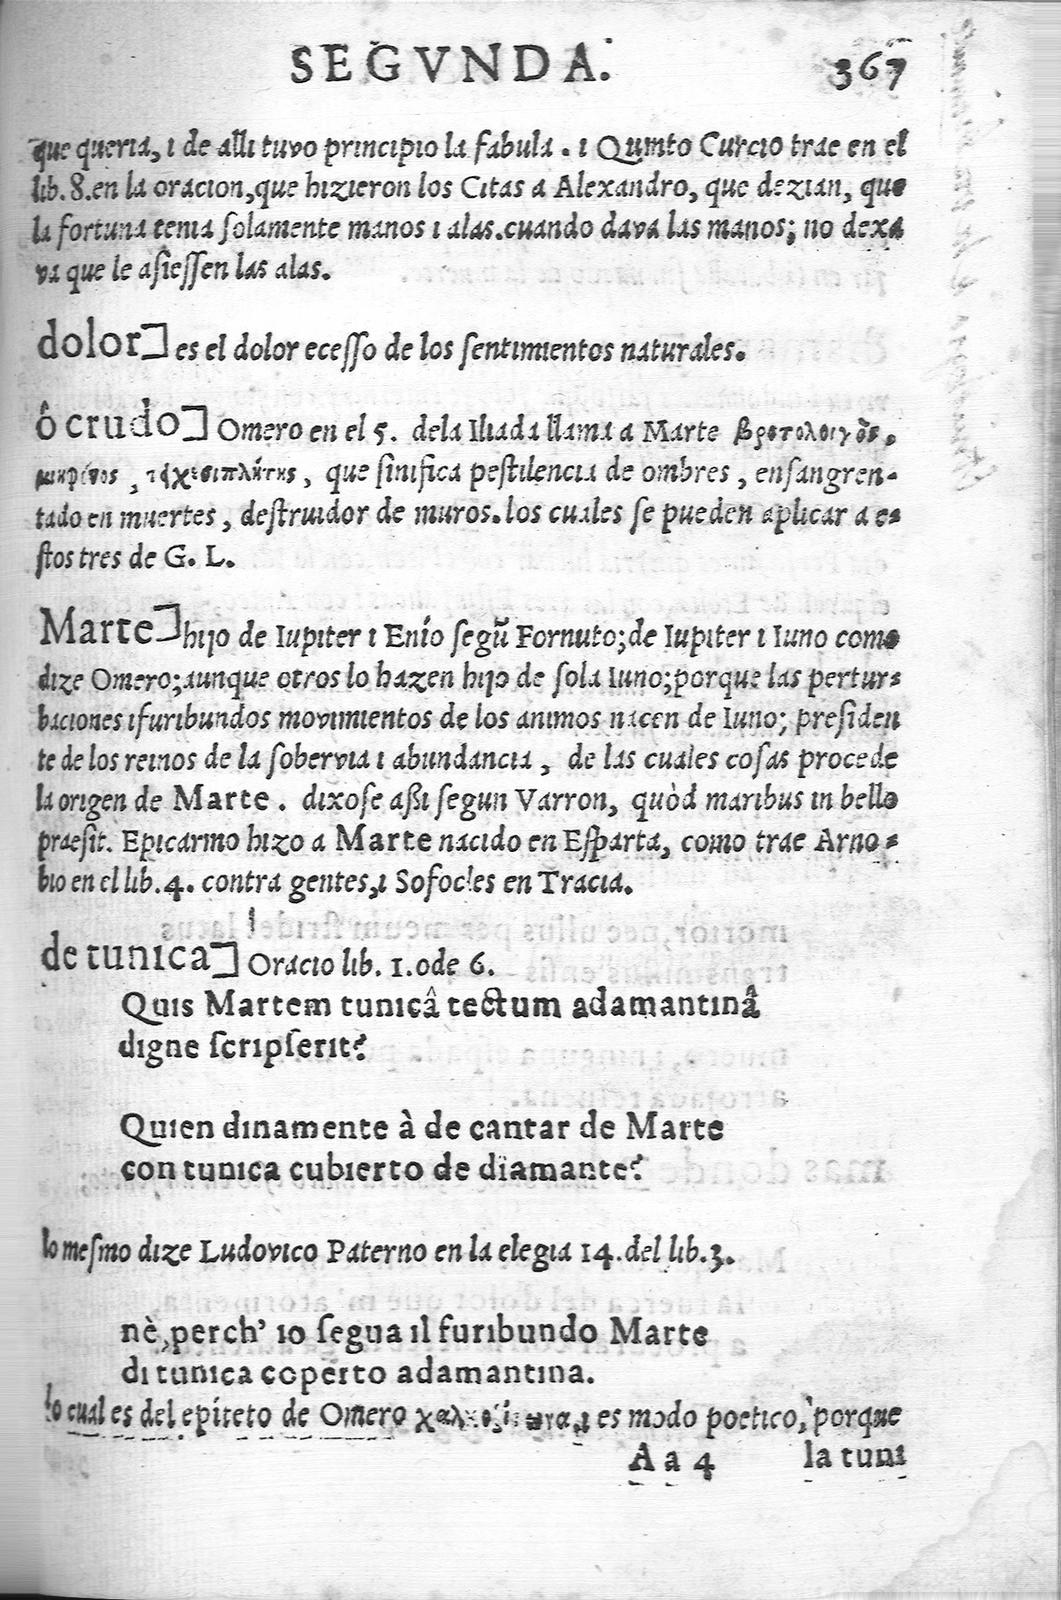 SEGVNDA. 367
que queria, i de alli tuvo principio la fabula. i Quinto Curcio trae en el
lib. 8. en la oracion, que hizieron los Citas a Alexandro, que dezian, que
la fortuna tenia ſolamente manos i alas. cuando dava las manos; no dexa
va que le aſieſſen las alas.
dolor] es el dolor eceſſo de los ſentimientos naturales.
ô crudo] Omero en el 5. dela Iliada llama a Marte βροτολοιγὸς,
, que ſinifica peſtilencia de ombres, enſangren-
tado en muertes, deſtruidor de muros. los cuales ſe pueden aplicar a e-
ſtos tres de G. L.
Marte] hijo de Iupiter i Enío ſegũ Fornuto; de Iupiter i Iuno como
dize Omero; aunque otros lo hazen hijo de ſola Iuno; porque las pertur-
baciones i furibundos movimientos de los animos nacen de Iuno; preſiden
te de los reinos de la ſobervia i abundancia, de las cuales coſas procede
la origen de Marte. dixoſe aſsi ſegun Varron, quòd maribus in bello
praeſit. Epicarmo hizo a Marte nacido en Eſparta, como trae Arno-
bio en el lib. 4. contra gentes, i Sofocles en Tracia.
de tunica] Oracio lib. 1. ode 6.
Quis Martem tunicâ tectum adamantinâ
digne ſcripſerit?
Quien dinamente à de cantar de Marte
con tunica cubierto de diamante?
lo meſmo dize Ludovico Paterno en la elegia 14. del lib. 3.
nè, perch' io ſegua il furibundo Marte
di tunica coperto adamantina.
lo cual es del epiteto de Omero i es modo poetico, porque
A a 4 la tuni